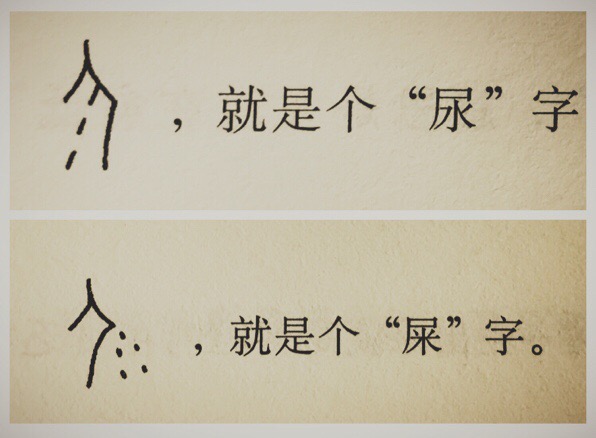 ，就是个“尿”字
，就是个“屎”字。